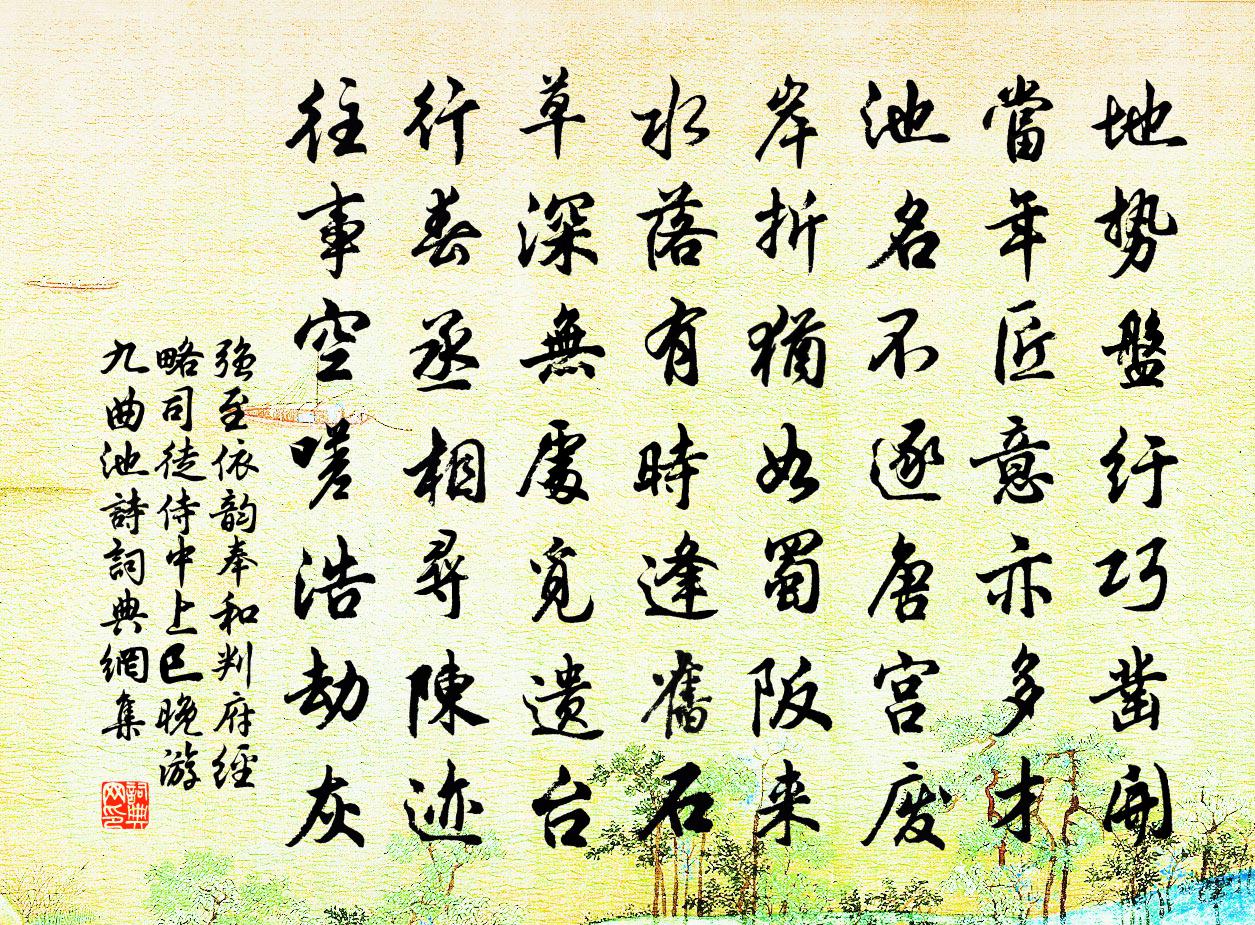 地势盤纡巧凿開
當年匠意亦多才
池名不逐唐宫废
岸折猶如蜀阪来
水落有時逢舊石
草深無處觅遗台
行春丞相尋陳迹
往事空嗟浩劫灰
強至依韵奉和判府經
略司徒侍中上巳晚游
九曲池詩詞典網集
詞典网印